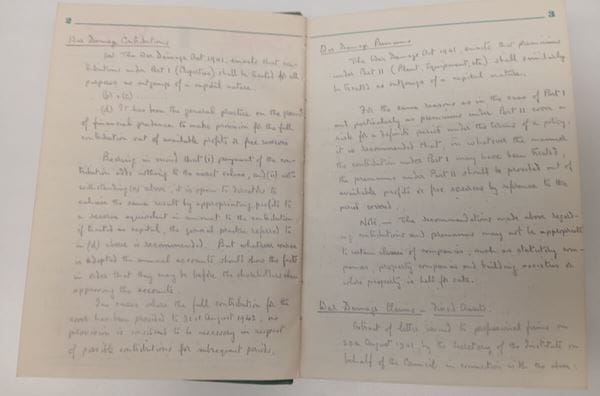 2
War Damage Contributions
(a) The War Damage Act 1941, enacts that con-
tributions under Part I (Properties) shall be treated for all
purposes as outgoings of a capital nature.
(b) & (c)
(d) It has been the general practice on the ground
of financial prudence to make provision for the full
contribution out of available profits or free reserves
Bearing in mind that (i) payment of the con-
tribution adds nothing to the asset values, and (ii) notwith-
withstanding (a) above, it is open to directors to
achieve the same result by appropriating profits to
a reserve equivalent in amount to the contribution
if treated as capital, the general practice referred to
in (d) above is recommended. But whatever course
is adopted the annual accounts should show the facts
in order that they may be before the shareholders when
approving the accounts.
In cases where the full contribution for the
has been provided to 31st August 1942, no
provision is considered to be necessary in respect
of possible contributions for subsequent periods.
3
War Damage Premiums
The War Damage Act 1941, enacts that premiums
under Part II (Plant, Equipment, etc) shall similarly
be treated as outgoings of a capital nature.
For the same reasons as in the case of Part I
and particularly as premiums under Part II cover a
risk for a definite period under the terms of a policy,
it is recommended that, in whatever the manner
the contribution under Part I may have been treated,
the premiums under Part II should be provided out of
available profits or free reserves by reference to the
period covered.
Note,— The recommendations made above regard-
ing contributions and premiums may not be appropriate
to certain classes of companies, such as statutory com-
panies, property companies and building societies or
where property is held for sale.
War Damage Claims - Fixed Assets.
Extract of letter issued to professional firms on
August 1941, by the Secretary of the Institute on
behalf of the Council in connection with the above: